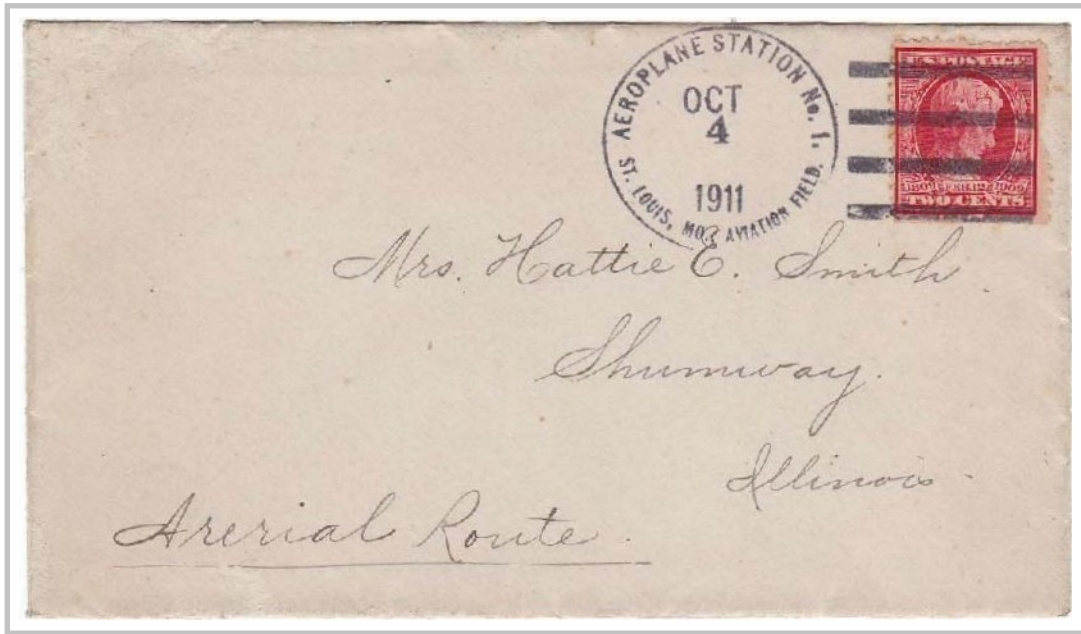 AEROPLANE STATION No. 1.
OCT
4
1911
ST. LOUIS, MO., AVIATION FIELD.
U.S. POSTAGE
1809 FEB. 12 1909
TWO CENTS
Mrs. Hattie E. Smith
Shumway.
Illinois.
Arerial Route.